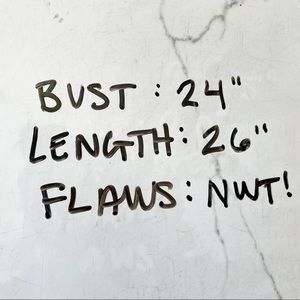 BUST: 24"
LENGTH: 26"
FLAWS: NWT!